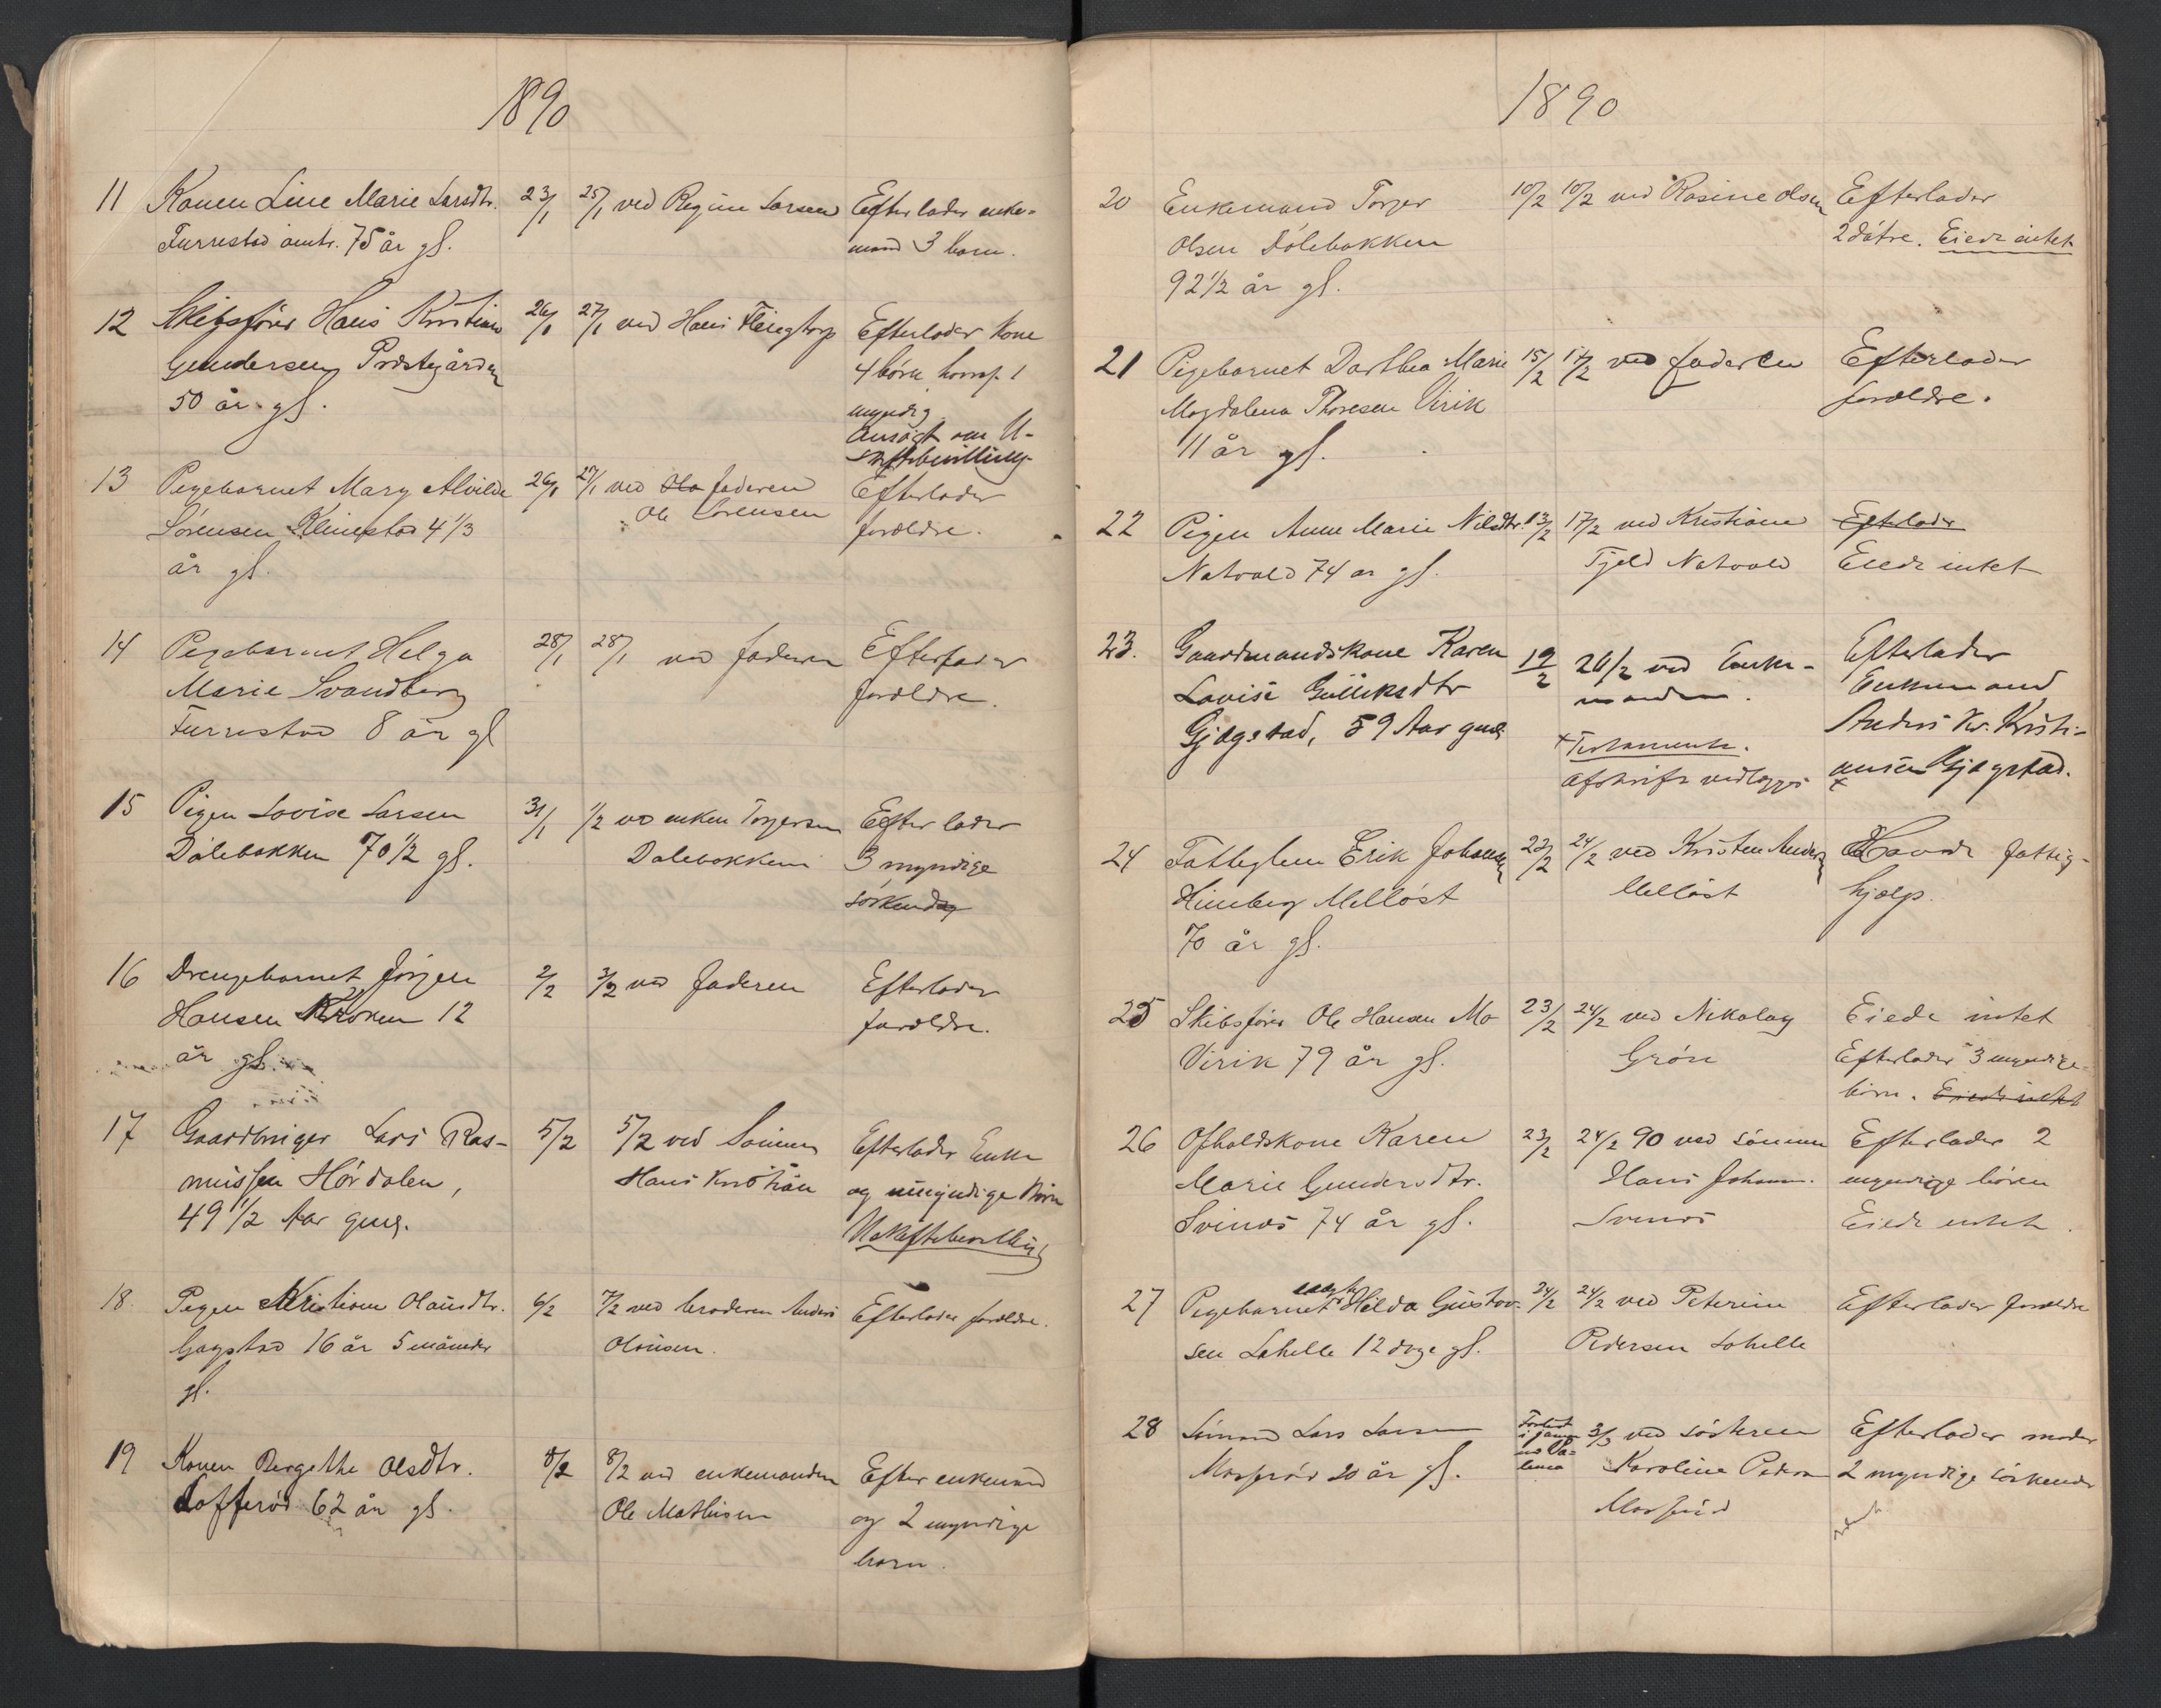 1890
11 Konen Line Marie Larsdtr. 23/1 25/1 ved Regine Larsen Efterlader enke-
Furrestad 75 år gl. mand 3 barn.
12 Skibsfører Hans Kristian 26/1 27/1 ved Hans Efterlader kone
Gundersen Præstegården 4 børn hvoraf 1
50 år gl. myndig
Ansøgt om U-
skiftebevilling
13 Pigebarnet Mary Alvilde 26/1 27/1 ved Ola faderen Efterlader
Sørensen Klinestad 4 1/3 Ole Sørensen forældre.
år gl.
14 Pigebarnet Helga 28/1 28/1 ved faderen Efterlader
Marie Svandberg forældre.
Furrestad 8 år gl
15 Pigen Lovise Larsen 31/1 1/2 ved enken Torgersen Efterlader
Dølebakken 70 1/2 gl. Dølebakken 3 myndige
søskende
16 Drengebarnet Jørgen 2/2 3/2 ved faderen Efterlader
Hansen Kroken 12 forældre.
år gl.
17 Gaardbruger Lars Ras- 5/2 5/2 ved Sønnen Efterlader Enke
mussen Hørdalen, Hans Kristian og umyndige Børn
49 1/2 Aar gml. Uskiftebevilling
18. Pigen Kristiane Olausdtr. 6/2 7/2 ved broderen Anders Efterlader forældre.
Gogstad 16 år 5 måneder Olausen.
gl.
19 Konen Bergethe Olsdtr. 8/2 8/2 ved enkemanden Efter enkemand
Lofferød 62 år gl. Ole Mathisen og 2 myndige
barn.
1890
20 Enkemand Torger 10/2 10/2 ved Rasine Olsen Efterlader
Olsen Dølebakken 2 døtre. Eiede intet
92 1/2 år gl.
21 Pigebarnet Dorthea Marie 15/2 17/2 ved faderen Efterlader
Magdalena Thoresen Virik forældre.
11 år gl.
22 Pigen Anne Marie Nilsdtr. 13/2 17/2 ved Kristiane Efterlader
Natvald 74 år gl. Tjeld Natvald Eiede intet
23. Gaardmandskone Karen 19/2 20/2 ved Enke- Efterlader
Lovise Gulliksdtr manden. Enkemand
Gjøgstad, 59 Aar gml. x Testamente. Anders Kr. Kristi-
afskrift vedlægges ansen Gjøgstad. x
24 Fattiglem Erik Johansen 23/2 24/2 ved Kristen Andersen Havde fattig-
Himberg Melløst Melløst hjælp.
70 år gl.
25 Skibsfører Ole Hansen Mo 23/2 24/2 ved Nikolay Eiede intet
Virik 79 år gl. Grøn Efterlader 3 myndige
børn. Eiede intet
26 Ofholdskone Karen 23/2 24/2 90 ved sønnen Efterlader 2
Marie Gundersdtr. Hans Johann. myndige børn
Svinos 74 år gl. Svinos Eiede intet.
27 Pigebarnet Hilda Gustav- 24/2 24/2 ved Peterine Efterlader forældre
sen Lahelle 12 dage gl. Pedersen Lahelle
28 Sømand Lars Larsen Forlist i januar 3/3 ved søsteren Efterlader moder
Mosserød 20 år gl. Karoline Pedersen 2 myndige søskende
Mosserød